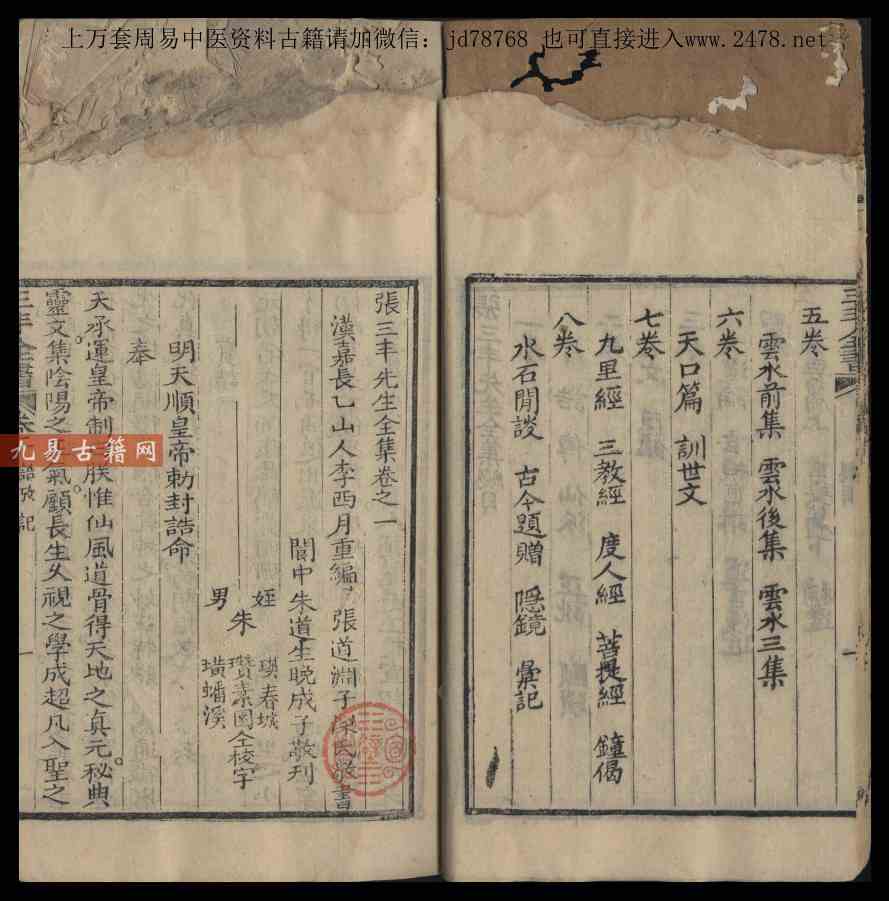 上万套周易中医资料古籍请加微信：jd78768 也可直接进入www.2478.net
五卷
雲水前集 雲水後集 雲水三集
六卷
天口篇 訓世文
七卷
九里經 三教經 度人經 菩提經 鐘偈
八卷
水石閒談 古今題贈 隱鏡 彙記
張三丰先生全集卷之一
漢嘉長乙山人李西月重編 張道淵子 氏敬書
閬中朱道生晚成子敬刊
姪 瑛春城
朱 瓚素園仝校字
男 璜蟠溪
明天順皇帝勅封誥命
奉
天承運皇帝制 朕惟仙風道骨得天地之眞元秘典
靈文集陰陽之 氣顧長生久視之學成超凡入聖之
三丰全書
九易古籍网